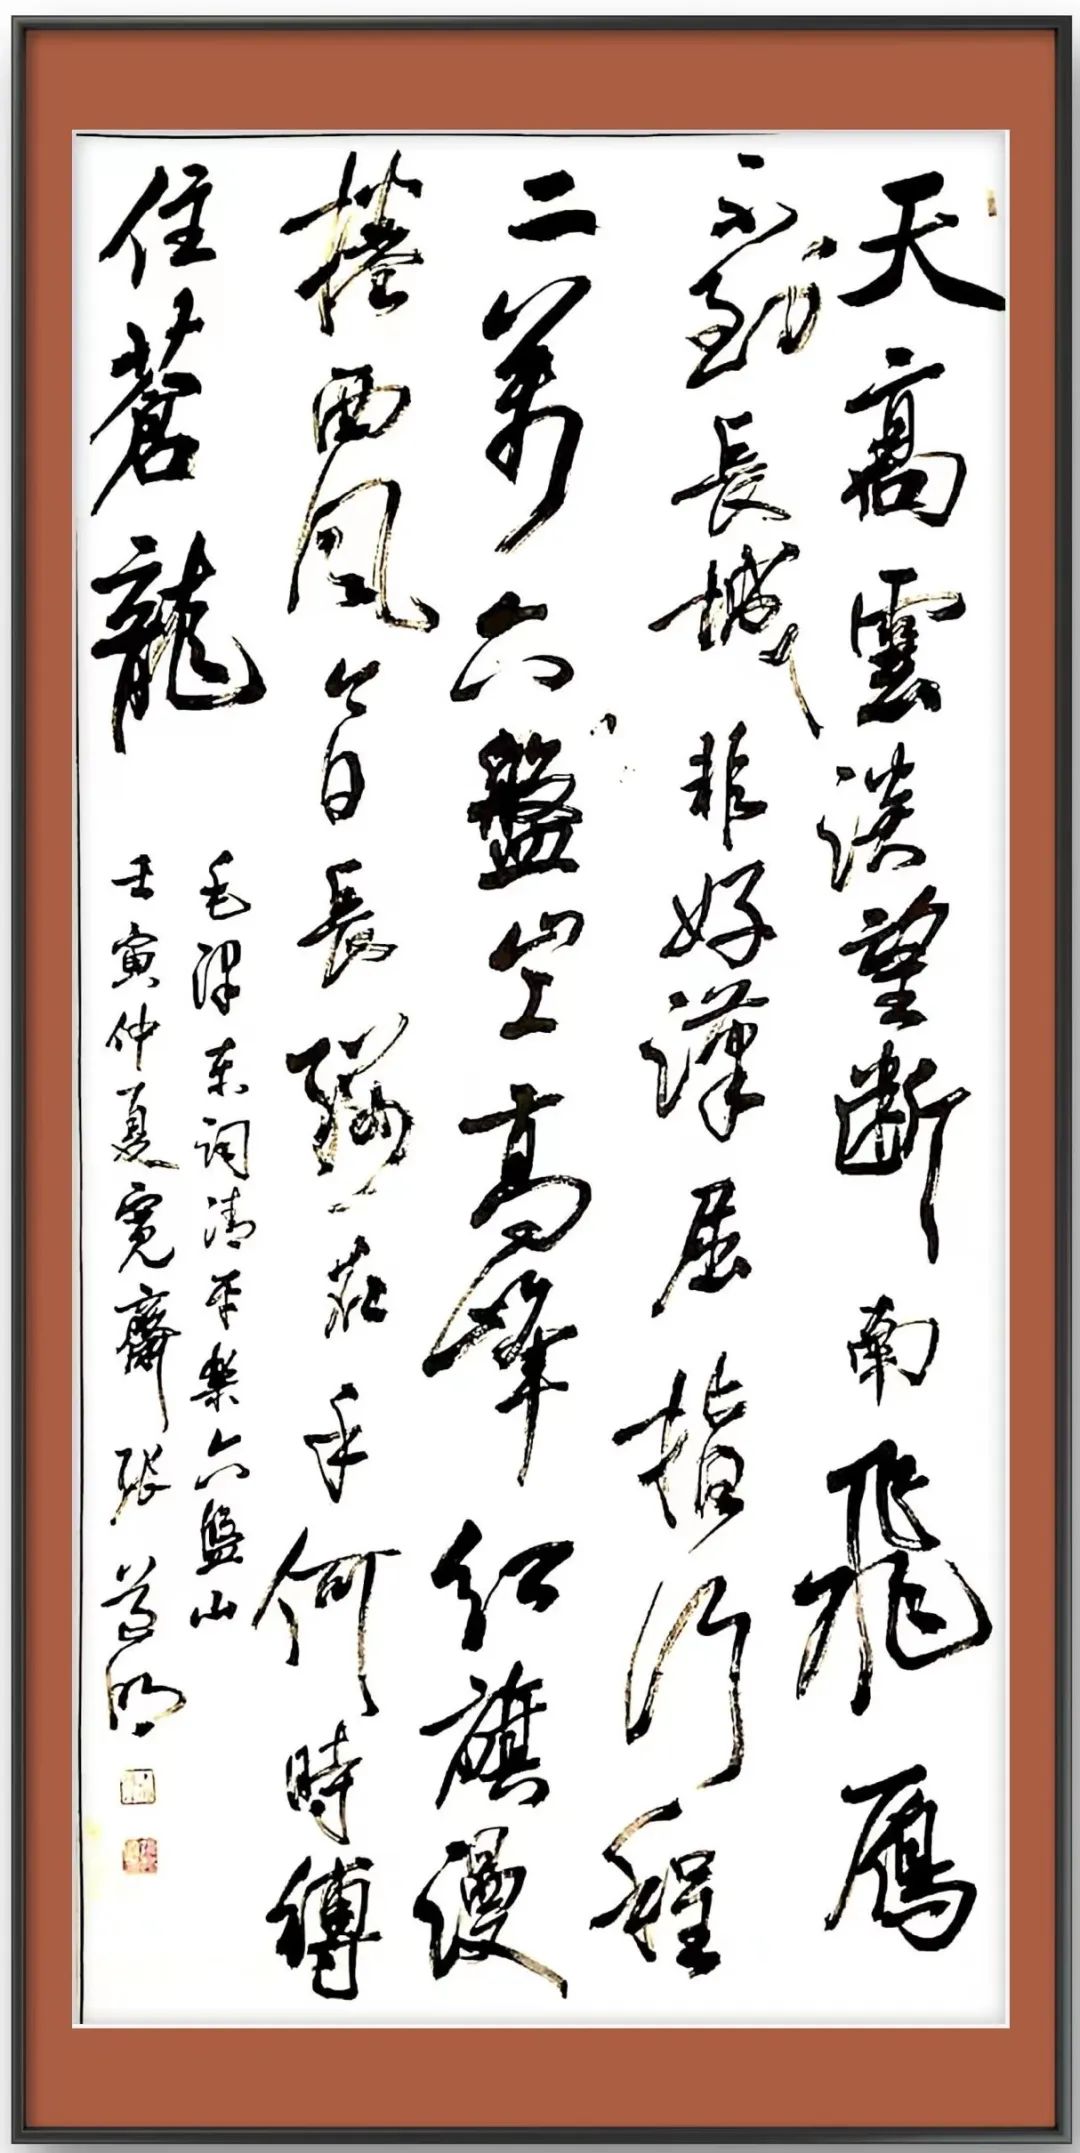 天高雲淡望斷南飛雁
不到長城非好漢屈指行程
二萬六盤山上高峰紅旗漫
捲西風今日長纓在手何時縛
住蒼龍
毛澤東詞清平樂六盤山
壬寅仲夏寬齋張道明